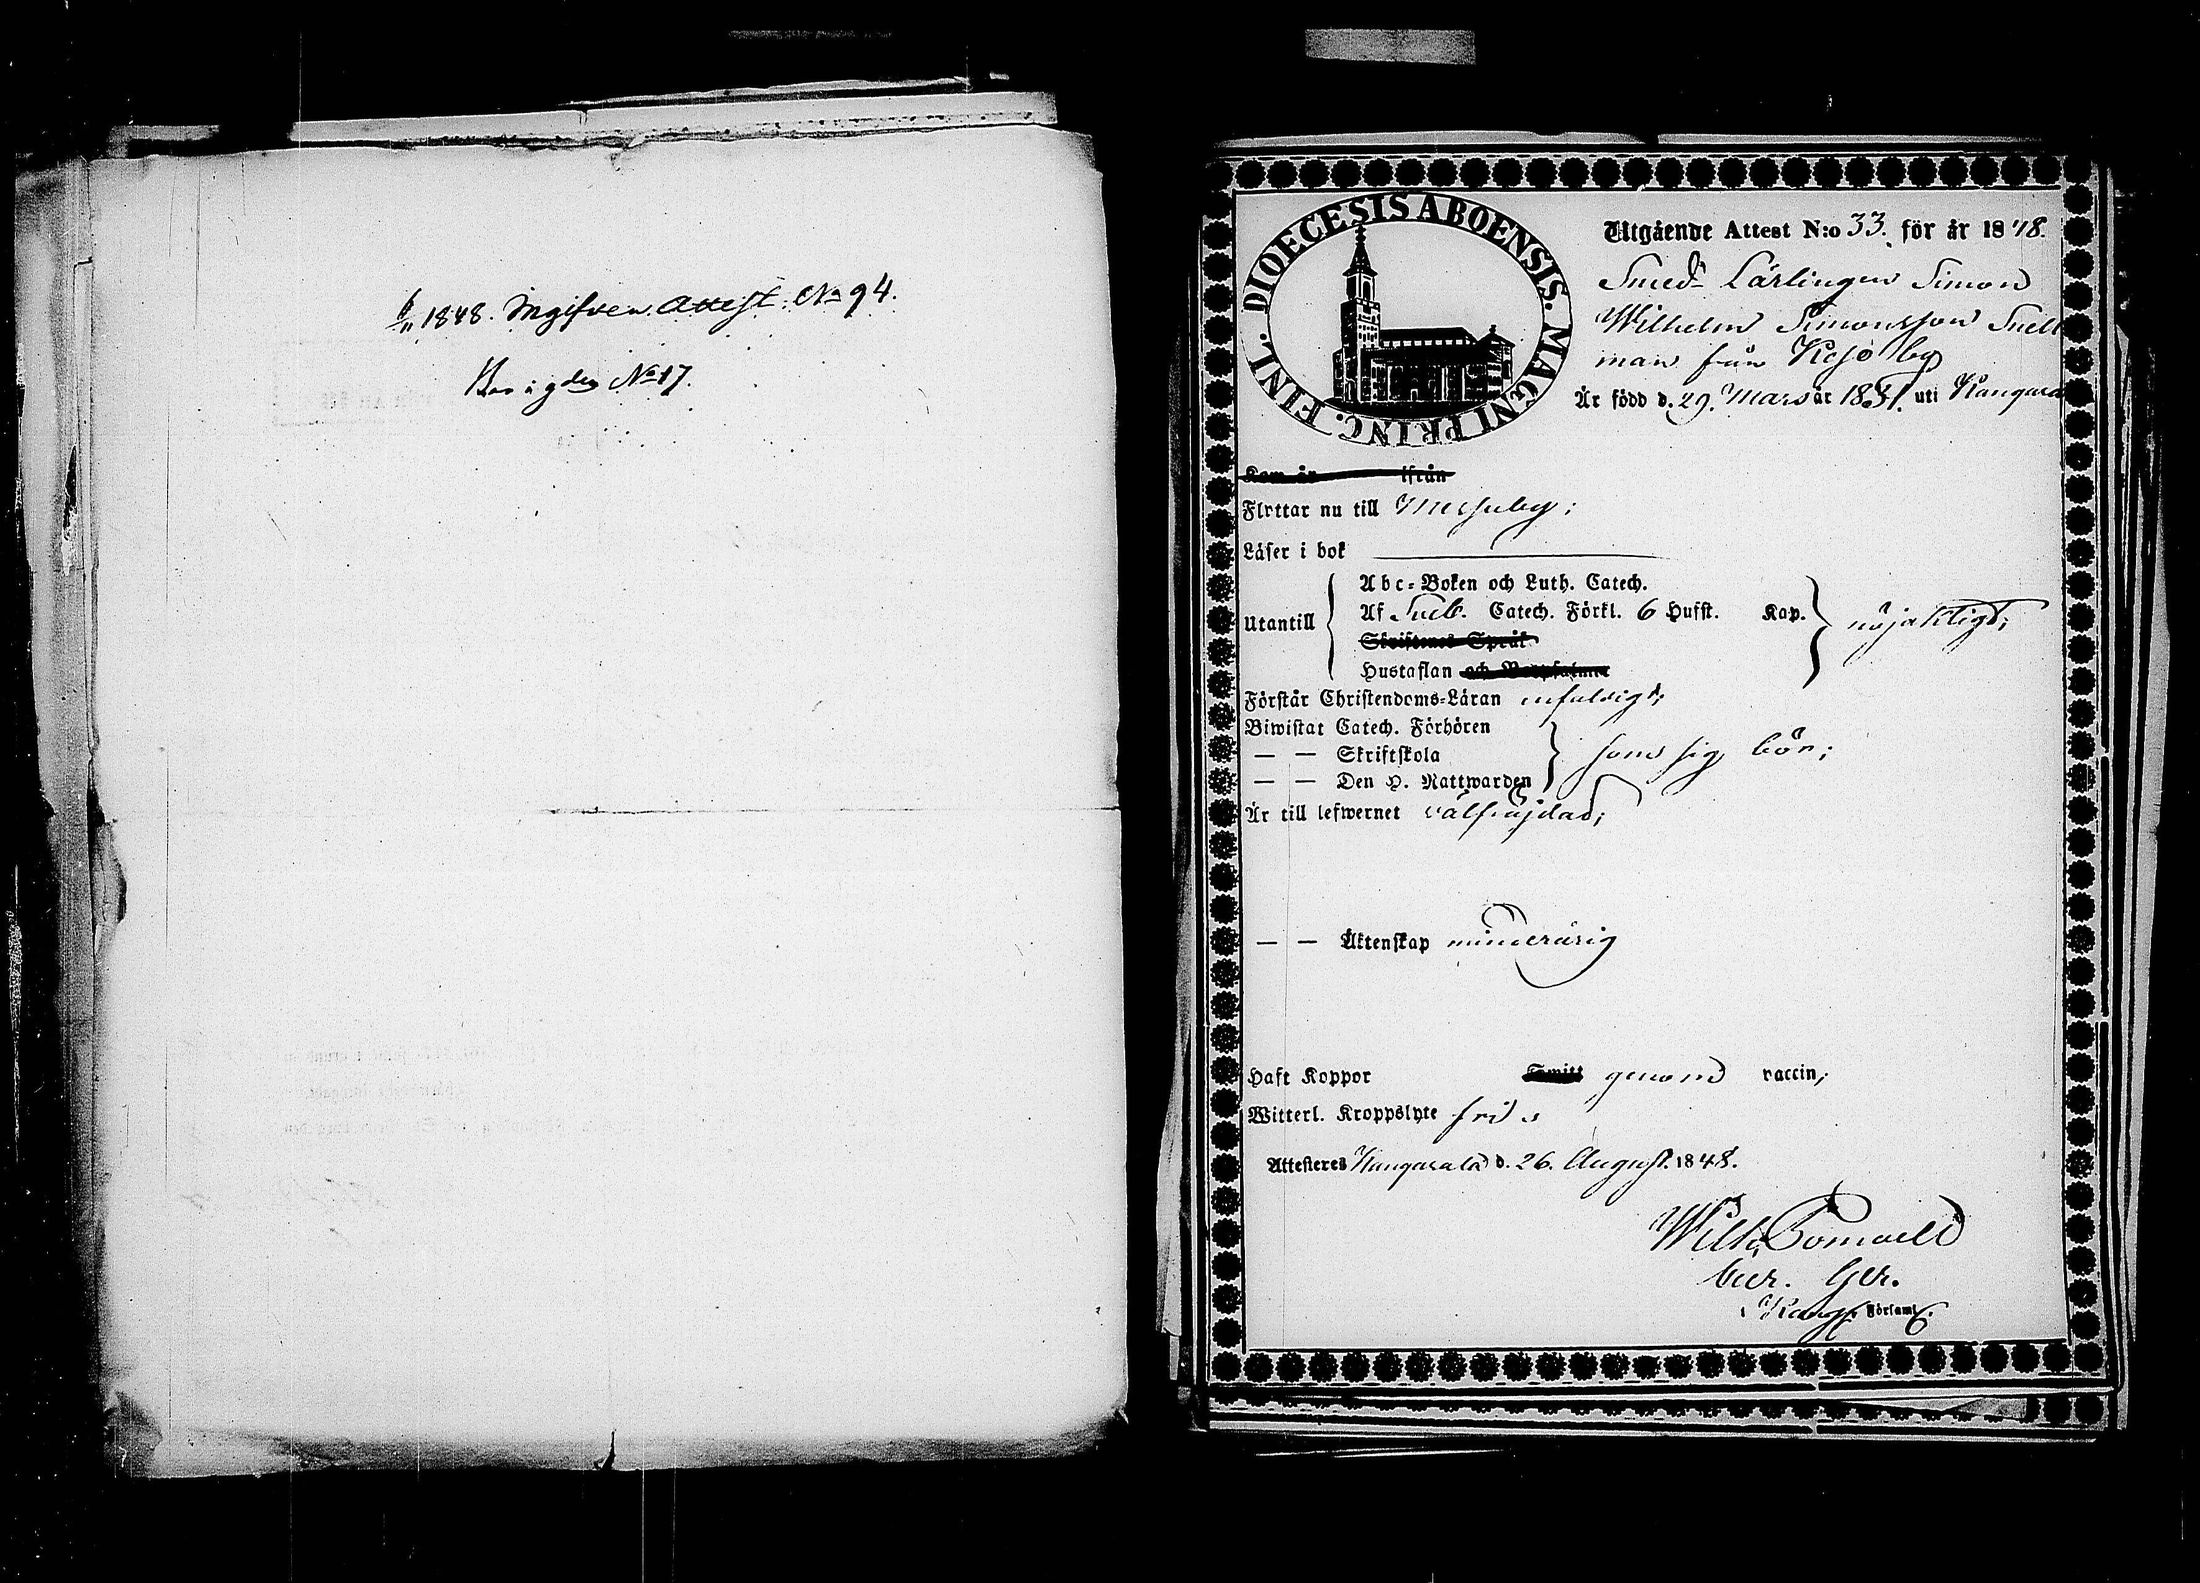 6/11 1848. Ingifven Attest. No 94.
No 17.
DIOECESIS ABOENSIS. MAGNI PRINC. FINL.
Utgående Attest N:o 33. för år 1848.
Smeds Lärlingen Simon
Wilhelm Simonsson Snell
man från
Är född d. 29. Mars år 1831. uti Kangasa
Kom år ifrån
Flyttar nu till Messuby;
Läser i bok
Abc-Boken och Luth. Catech.
Utantill Af Sveb. Catech. Förkl. 6 Hufst. Kap. nöjaktigt;
Skriftenes Språk
Hustaflan och
Förstår Christendoms-Läran enfaldigt;
Biwistat Catech. Förhören
— — Skriftskola som sig bör;
— — Den H. Nattwarden
Är till lefwernet välfräjdad;
— — Äktenskap minderårig
Haft Koppor genom vaccin;
Witterl. Kroppslyte fri
Attesteras Kangasala d. 26. August. 1848.
Wilh.
i Kang. Församl.